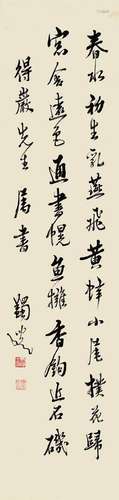 春水初生乳燕飛黃蜂小尾撲花歸
窓含遠色通書幌魚擁香鉤近石磯
得巖先生屬書